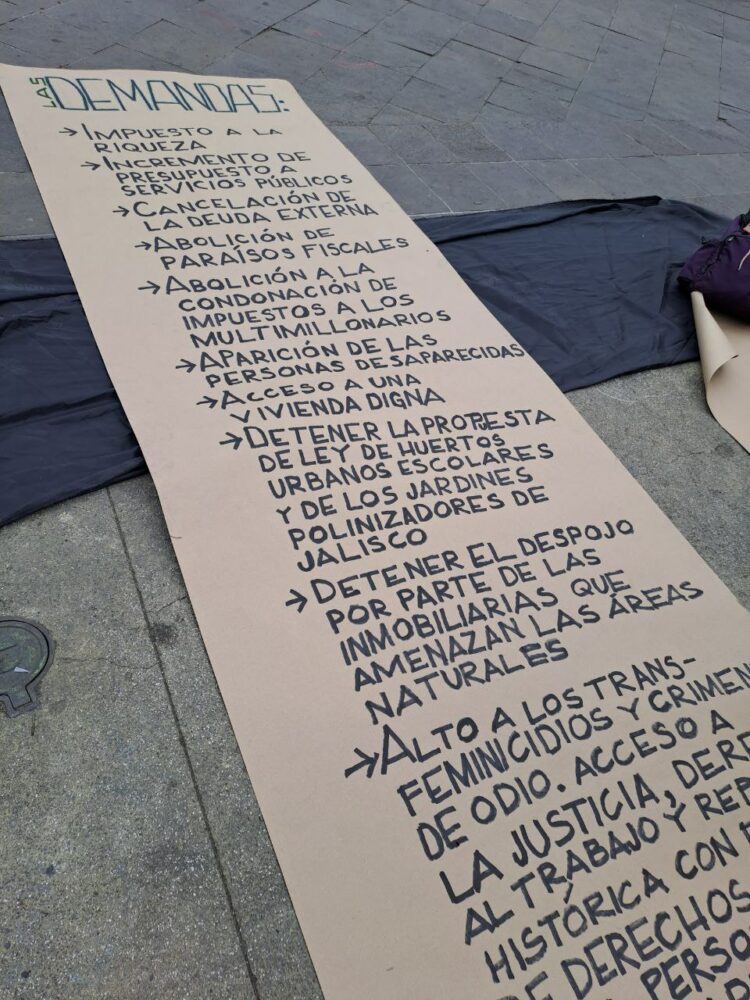 LAS DEMANDAS:
→ IMPUESTO A LA
RIQUEZA
→ INCREMENTO DE
PRESUPUESTO A
SERVICIOS PÚBLICOS
→ CANCELACIÓN DE
LA DEUDA EXTERNA
→ ABOLICIÓN DE
PARAÍSOS FISCALES
→ ABOLICIÓN A LA
CONDONACIÓN DE
IMPUESTOS A LOS
MULTIMILLONARIOS
→ APARICIÓN DE LAS
PERSONAS DESAPARECIDAS
→ ACCESO A UNA
VIVIENDA DIGNA
→ DETENER LA PROPUESTA
DE LEY DE HUERTOS
URBANOS ESCOLARES
Y DE LOS JARDINES
POLINIZADORES DE
JALISCO
→ DETENER EL DESPOJO
POR PARTE DE LAS
INMOBILIARIAS QUE
AMENAZAN LAS ÁREAS
NATURALES
→ ALTO A LOS TRANS-
FEMINICIDIOS Y CRIMEN
DE ODIO. ACCESO A
LA JUSTICIA, DERE
AL TRABAJO Y REP
HISTÓRICA CON
DE DERECHOS
PERSO